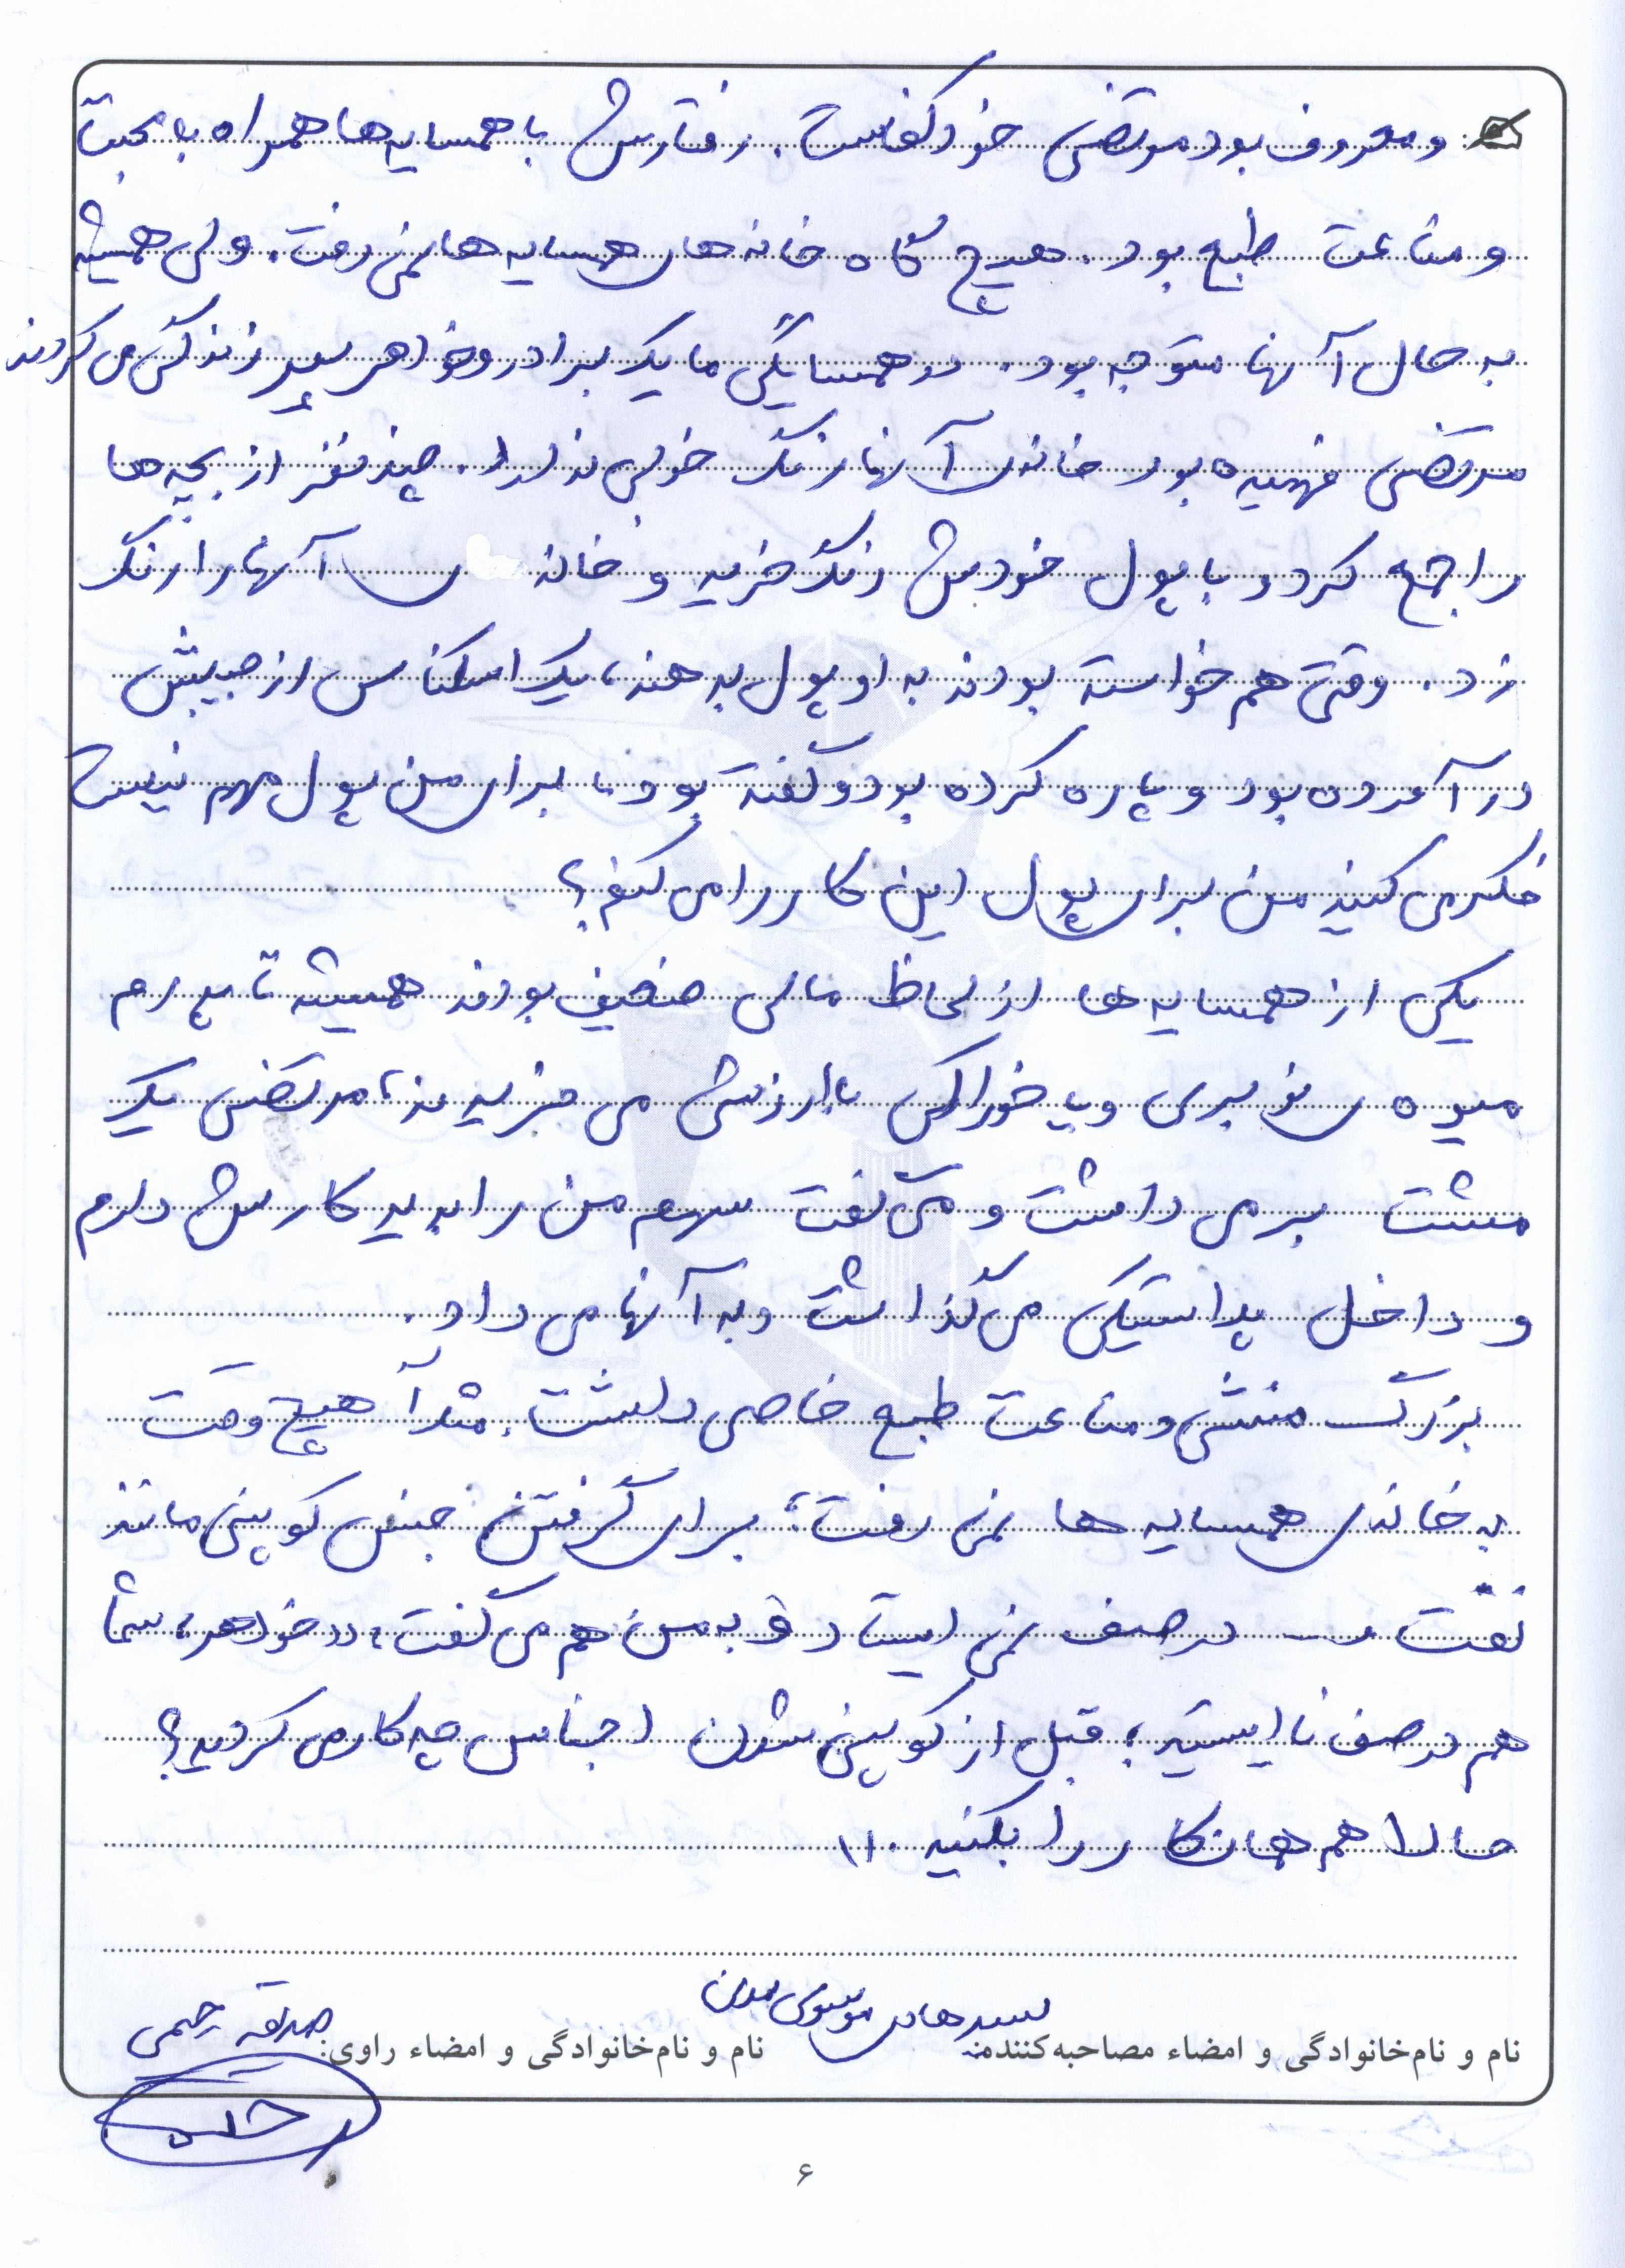 و معروف بود مرتضی خودکفاست. رفتارش با همسایه‌ها همراه با محبت
و مناعت طبع بود. هیچ گاه خانه‌های همسایه‌ها نمی رفت. ولی همیشه
به حال آنها متوجه بود. در همسایگی ما یک برادر و خواهر پیر زندگی می کردند
مرتضی فهمیده بود خانه‌ی آنها رنگ خوبی ندارد. چند نفر از بچه‌ها
را جمع کرد و با پول خودش رنگ خرید و خانه ی آنها را رنگ
زد. وقتی هم خواسته بودند به او پول بدهند، یک اسکناس از جیبش
در آورده بود و پاره کرده بود و گفته بود: برای من پول مهم نیست
فکر می کنید من برای پول این کار را می کنم؟
یکی از همسایه‌ها از لحاظ مالی ضعیف بودند همیشه تا پدرم
میوه ی نوبری و یا خوراکی با ارزشی می خریدند، مرتضی یک
مشت بر می داشت و می گفت سهم من را بدید کارش دارم
و داخل پلاستیکی می گذاشت و به آنها می داد.
بزرگ منشی و مناعت طبع خاصی داشت. مثلاً هیچ وقت
به خانه‌ی همسایه ها نمی رفت؛ برای گرفتن جنس کوپنی مانند
نفت و... در صف نمی ایستاد و به من هم می گفت: ((خواهر، شما
هم در صف نایستید؛ قبل از کوپنی شدن اجناس چه کار می کردید؟
حالا هم همان کار را بکنید.))
نام و نام‌خانوادگی و امضاء مصاحبه‌کننده: سید هادی موسوی
نام و نام‌خانوادگی و امضاء راوی: صدیقه رحیمی
۶